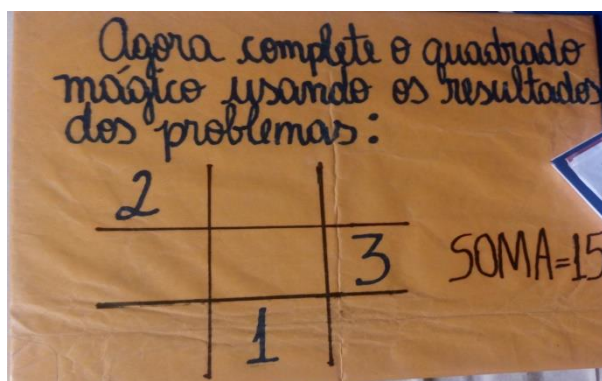 Agora complete o quadrado
mágico usando os resultados
dos problemas:
2
3 SOMA=15
1